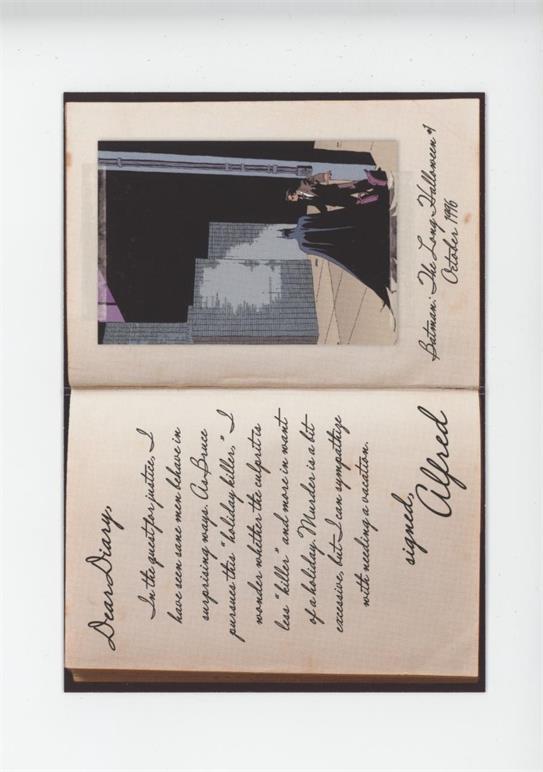 Dear Diary,
In the quest for justice, I
have seen sane men behave in
surprising ways. As Bruce
pursues this "holiday killer," I
wonder whether the culprit is
less "killer" and more in want
of a holiday. Murder is a bit
excessive, but I can sympathize
with needing a vacation.
signed,
Alfred
Batman: The Long Halloween #1
October 1996